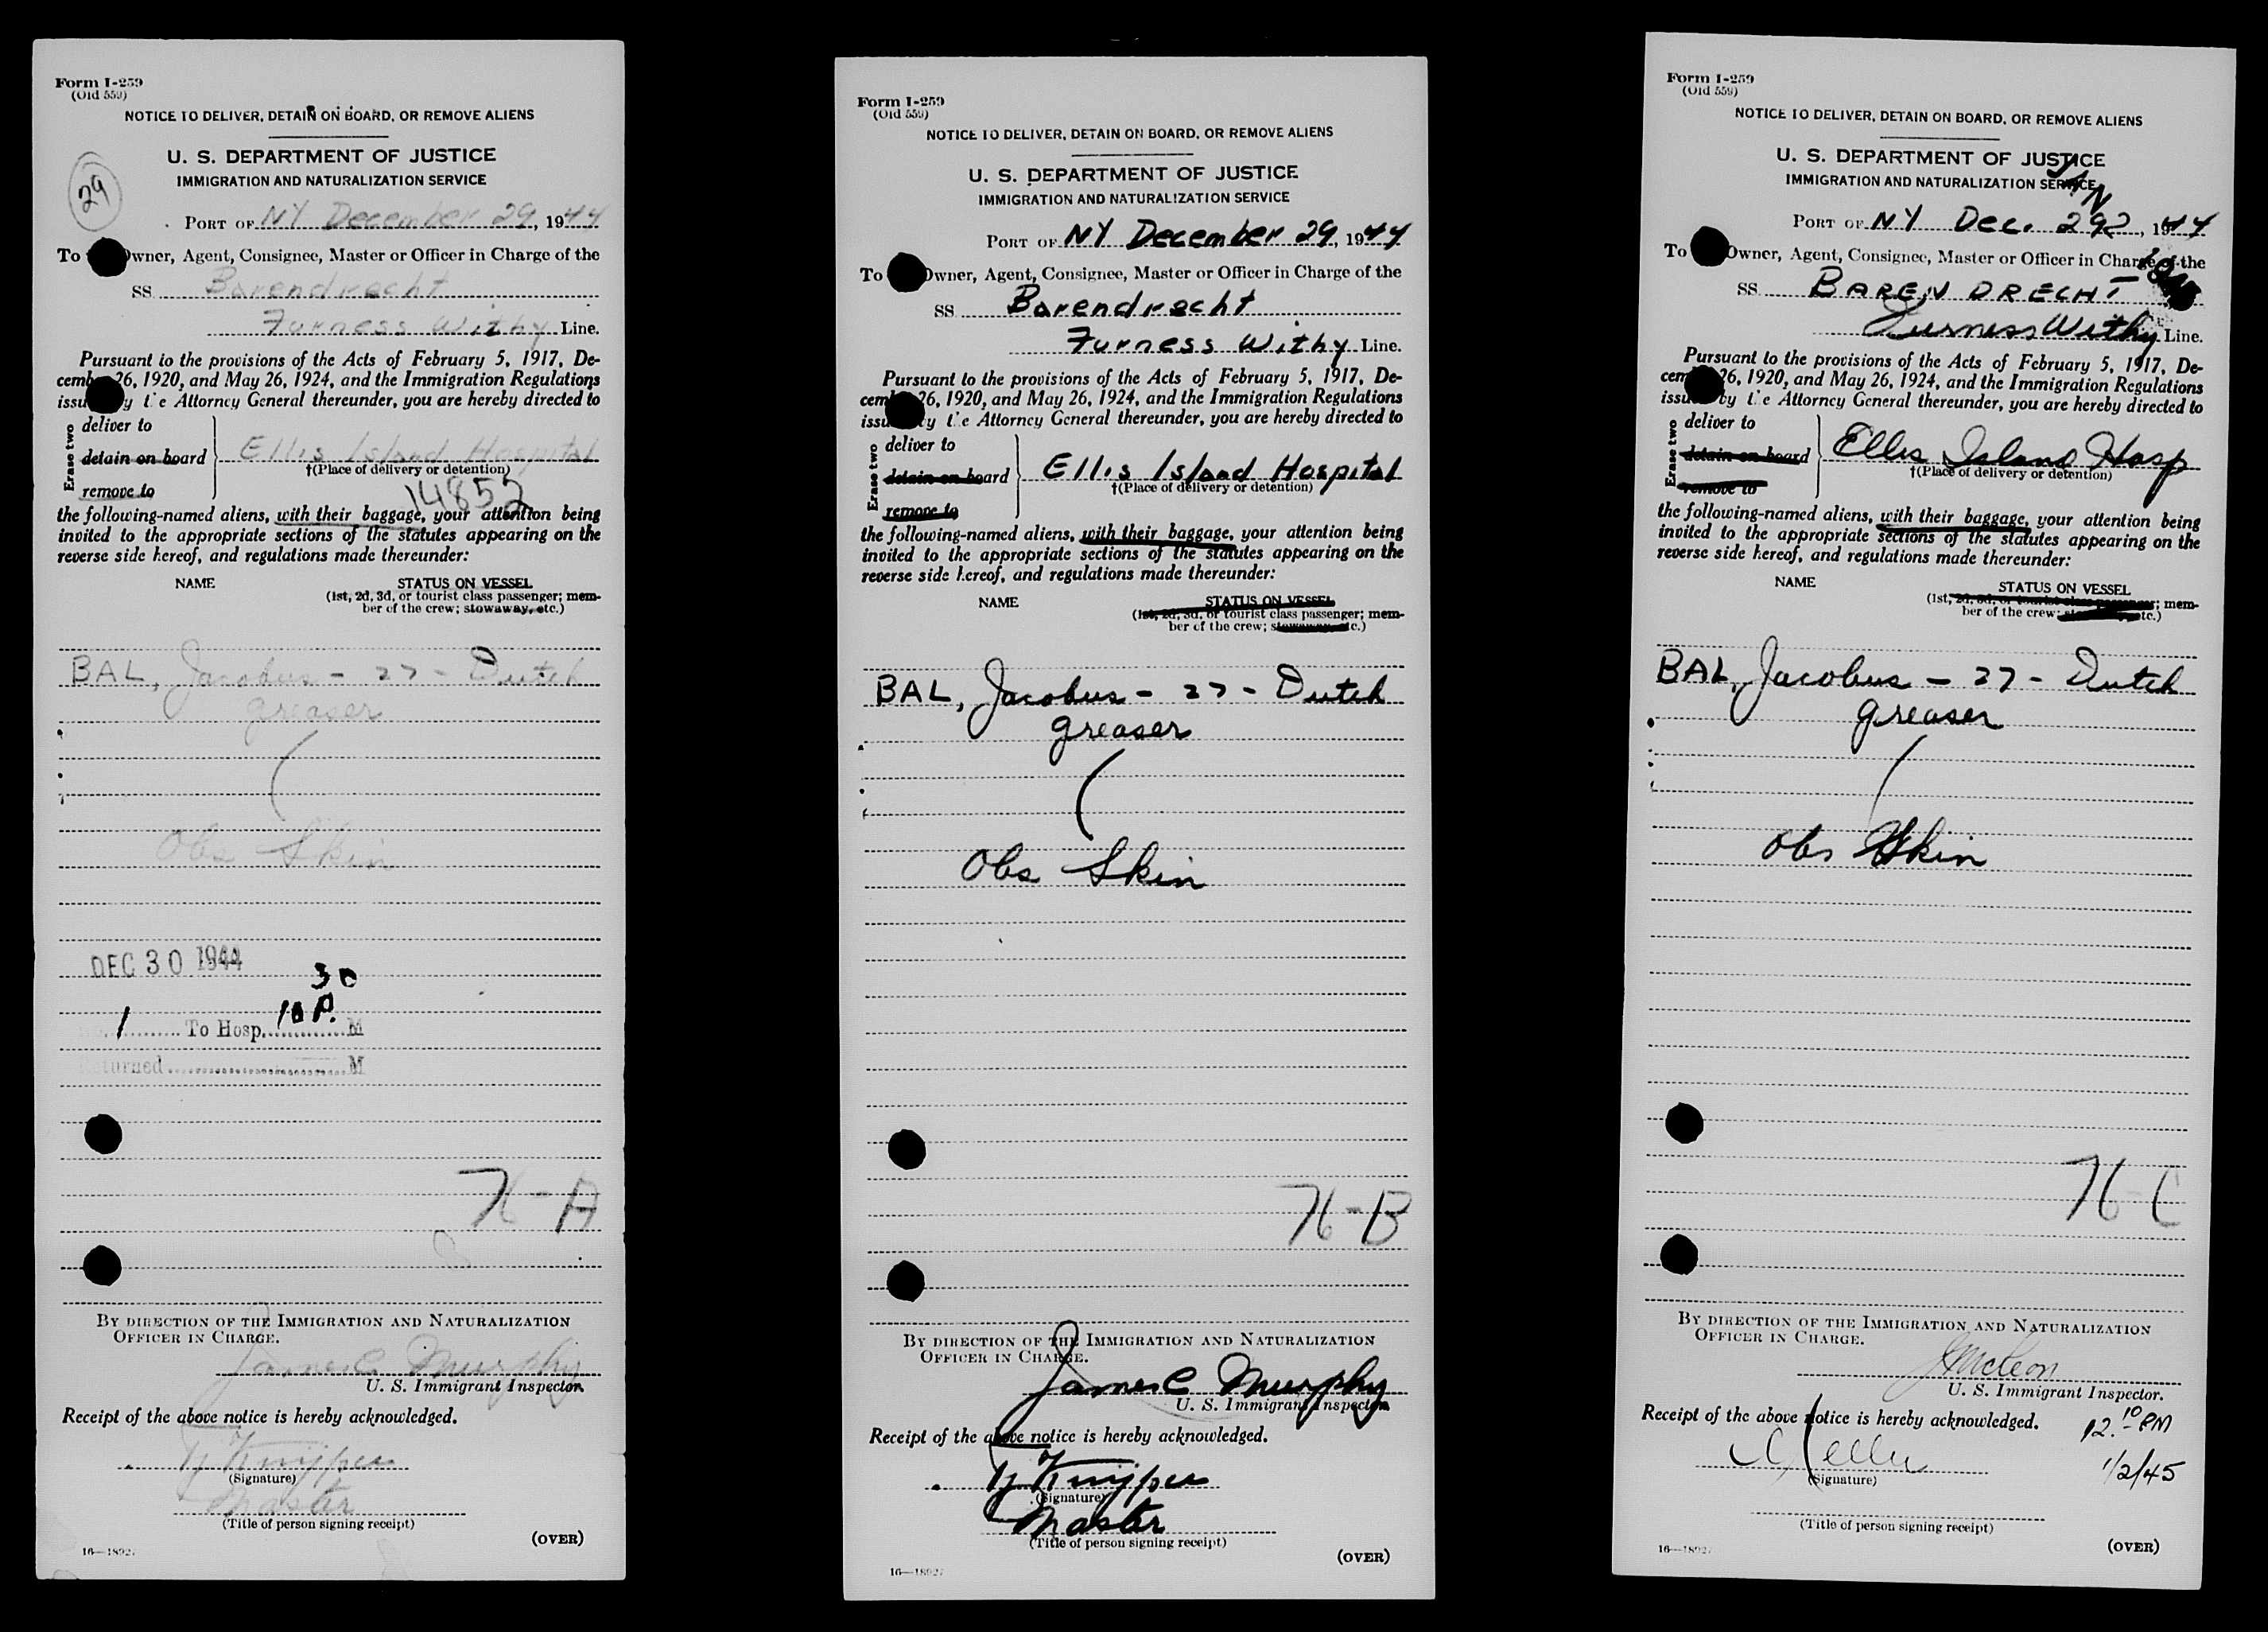 Form I-259
(Old 559)
NOTICE TO DELIVER, DETAIN ON BOARD, OR REMOVE ALIENS
U. S. DEPARTMENT OF JUSTICE
IMMIGRATION AND NATURALIZATION SERVICE
29
PORT OF NY December 29, 1944
To Owner, Agent, Consignee, Master or Officer in Charge of the
SS Barendrecht
Furness Withy Line.
Pursuant to the provisions of the Acts of February 5, 1917, De-
cember 26, 1920, and May 26, 1924, and the Immigration Regulations
issued by the Attorney General thereunder, you are hereby directed to
Erase two
deliver to
detain on board
remove to
Ellis Island Hospital
†(Place of delivery or detention)
14852
the following-named aliens, with their baggage, your attention being
invited to the appropriate sections of the statutes appearing on the
reverse side hereof, and regulations made thereunder:
NAME STATUS ON VESSEL
(1st, 2d, 3d, or tourist class passenger; mem-
ber of the crew; stowaway, etc.)
BAL, Jacobus - 27 - Dutch
greaser
Obs Skin
DEC 30 1944
1 To Hosp. 10 30 P. M
Returned M
76-A
BY DIRECTION OF THE IMMIGRATION AND NATURALIZATION
OFFICER IN CHARGE.
James C Murphy
U. S. Immigrant Inspector.
Receipt of the above notice is hereby acknowledged.
Kuijper
(Signature)
Master
(Title of person signing receipt)
(OVER)
16—18927
Form I-259
(Old 559)
NOTICE TO DELIVER, DETAIN ON BOARD, OR REMOVE ALIENS
U. S. DEPARTMENT OF JUSTICE
IMMIGRATION AND NATURALIZATION SERVICE
PORT OF NY December 29, 1944
To Owner, Agent, Consignee, Master or Officer in Charge of the
SS Barendrecht
Furness Withy Line.
Pursuant to the provisions of the Acts of February 5, 1917, De-
cember 26, 1920, and May 26, 1924, and the Immigration Regulations
issued by the Attorney General thereunder, you are hereby directed to
Erase two
deliver to
detain on board
remove to
Ellis Island Hospital
†(Place of delivery or detention)
the following-named aliens, with their baggage, your attention being
invited to the appropriate sections of the statutes appearing on the
reverse side hereof, and regulations made thereunder:
NAME STATUS ON VESSEL
(1st, 2d, 3d, or tourist class passenger; mem-
ber of the crew; stowaway, etc.)
BAL, Jacobus - 27 - Dutch
greaser
Obs Skin
76-B
BY DIRECTION OF THE IMMIGRATION AND NATURALIZATION
OFFICER IN CHARGE.
James C Murphy
U. S. Immigrant Inspector.
Receipt of the above notice is hereby acknowledged.
Kuijper
(Signature)
Master
(Title of person signing receipt)
(OVER)
16—18927
Form I-259
(Old 559)
NOTICE TO DELIVER, DETAIN ON BOARD, OR REMOVE ALIENS
U. S. DEPARTMENT OF JUSTICE
IMMIGRATION AND NATURALIZATION SERVICE
JAN
PORT OF NY Dec. 292, 1944
To Owner, Agent, Consignee, Master or Officer in Charge of the
SS BARENDRECHT
Furness Withy Line.
Pursuant to the provisions of the Acts of February 5, 1917, De-
cember 26, 1920, and May 26, 1924, and the Immigration Regulations
issued by the Attorney General thereunder, you are hereby directed to
Erase two
deliver to
detain on board
remove to
Ellis Island Hosp
†(Place of delivery or detention)
the following-named aliens, with their baggage, your attention being
invited to the appropriate sections of the statutes appearing on the
reverse side hereof, and regulations made thereunder:
NAME STATUS ON VESSEL
(1st, 2d, 3d, or tourist class passenger; mem-
ber of the crew; stowaway, etc.)
BAL, Jacobus - 27 - Dutch
greaser
Obs Skin
76-C
BY DIRECTION OF THE IMMIGRATION AND NATURALIZATION
OFFICER IN CHARGE.
U. S. Immigrant Inspector.
Receipt of the above notice is hereby acknowledged. 12.10 PM
1/2/45
(Signature)
(Title of person signing receipt)
(OVER)
16—18927